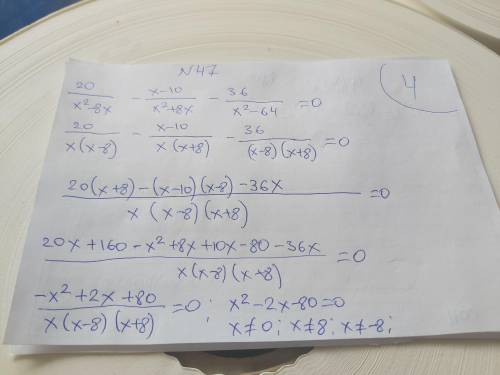 N47
4
20/(x²-8x) - (x-10)/(x²+8x) - 36/(x²-64) = 0
20/(x(x-8)) - (x-10)/(x(x+8)) - 36/((x-8)(x+8)) = 0
(20(x+8)-(x-10)(x-8)-36x)/(x(x-8)(x+8)) = 0
(20x+160-x²+8x+10x-80-36x)/(x(x-8)(x+8)) = 0
(-x²+2x+80)/(x(x-8)(x+8)) = 0; x²-2x-80=0
x≠0; x≠8; x≠-8;